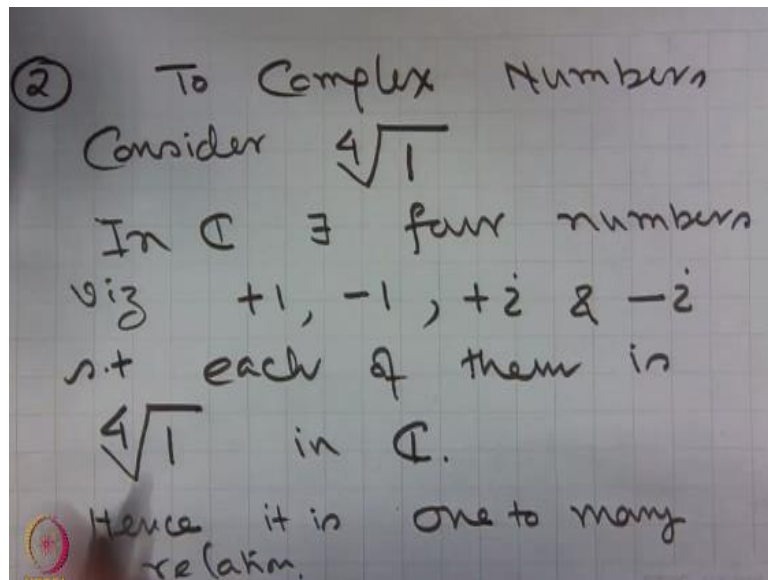 ② To Complex Numbers
Consider ∜1
In ℂ ∃ four numbers
viz +1, -1, +i & -i
s.t each of them is
∜1 in ℂ.
Hence it is one to many
relation.